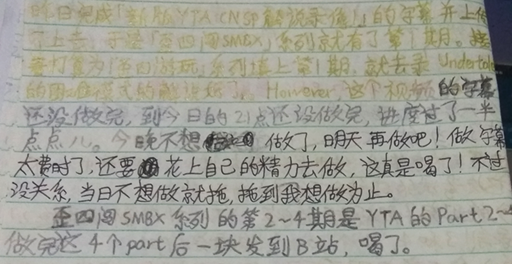 昨日完成「新版YTA CNSP解说录像!」的字幕并上传
了上去,于是「歪四闯SMBX」系列就有了第1期。接
着打算为「歪四游玩」系列填上第1期,就去录Undertale
的 However,这个视频的字幕
还没做完,到今日的21点还没做完,进度过了一半
点点儿。今晚不想做了,明天再做吧!做字幕
太费时了,还要花上自己的精力去做,这真是喝了!不过
没关系,当日不想做就拖,拖到我想做为止。
歪四闯SMBX系列的第2~4期是YTA的Part 2~
做完这4个part后一块发到B站,喝了。